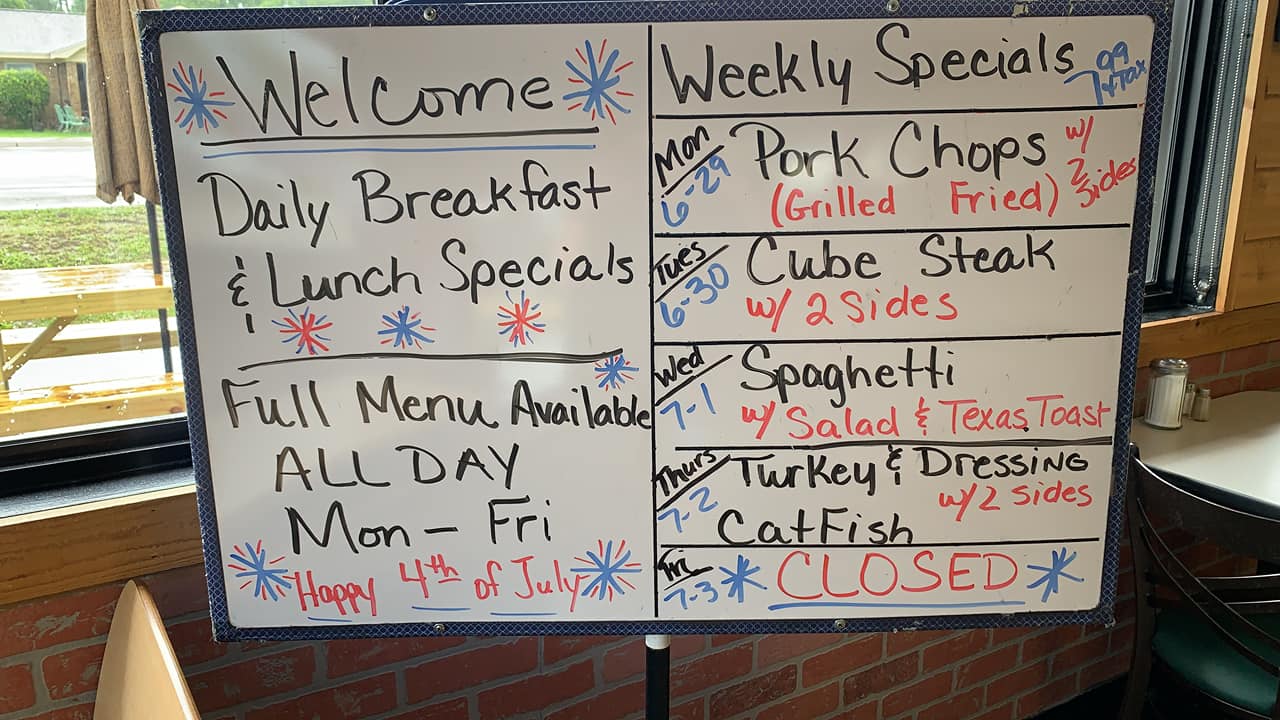 Welcome
Daily Breakfast
& Lunch Specials
Full Menu Available
ALL DAY
Mon - Fri
Happy 4th of July
Weekly Specials 7.99 + Tax
Mon 6-29 Pork Chops w/ 2 Sides
(Grilled Fried)
Tues 6-30 Cube Steak
w/ 2 Sides
Wed 7-1 Spaghetti
w/ Salad & Texas Toast
Thurs 7-2 Turkey & Dressing
w/ 2 Sides
CatFish
Fri 7-3 CLOSED